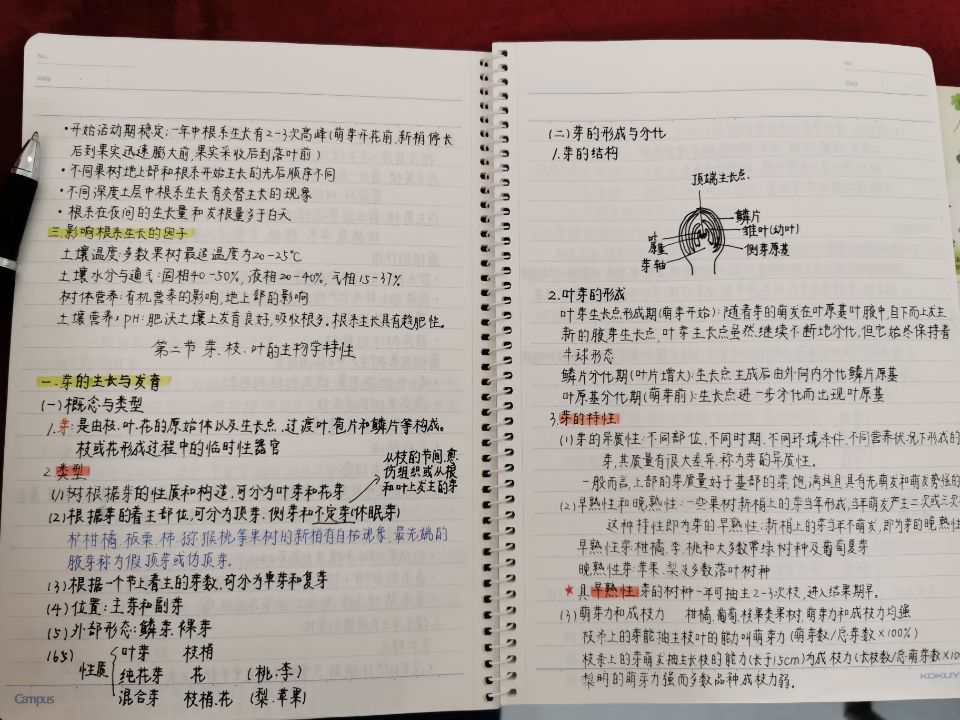 No.
Date
·开始活动期稳定:一年中根系生长有2-3次高峰(萌芽开花前,新梢停长
后到果实迅速膨大前,果实采收后到落叶前)
·不同果树地上部和根系开始生长的先后顺序不同
·不同深度土层中根系生长有交替生长的现象
·根系在夜间的生长量和发根量多于白天
三.影响根系生长的因子
土壤温度:多数果树最适温度为20-25℃
土壤水分与通气:固相40-50%,液相20-40%,气相15-37%
树体营养:有机营养的影响,地上部的影响
土壤营养,pH:肥沃土壤上发育良好,吸收根多。根系生长具有趋肥性。
第二节 芽、枝、叶的生物学特性
一.芽的生长与发育
(一)概念与类型
1.芽:是由枝.叶.花的原始体以及生长点、过渡叶、苞片和鳞片等构成。
枝或花形成过程中的临时性器官
2.类型
从枝的节间,愈
伤组织或从根
和叶上发生的芽
(1)树根据芽的性质和构造,可分为叶芽和花芽
(2)根据芽的着生部位,可分为顶芽、侧芽和不定芽(休眠芽)
柑橘、板栗、柿、猕猴桃等果树的新梢有自枯现象,最先端的
腋芽称为假顶芽或伪顶芽。
(3)根据一个节上着生的芽数,可分为单芽和复芽
(4)位置:主芽和副芽
(5)外部形态:鳞芽、裸芽
(6)
性质
叶芽 枝梢
纯花芽 花 (桃.李)
混合芽 枝梢.花 (梨.苹果)
Campus
No.
Date
(二)芽的形成与分化
1.芽的结构
顶端生长点.
鳞片
雏叶(幼叶)
侧芽原基
叶
原基
芽轴
2.叶芽的形成
叶芽生长点形成期(萌芽开始):随着芽的萌发在叶原基叶腋中,自下而上发生
新的腋芽生长点,叶芽生长点虽然继续不断地分化,但它始终保持着
半球形态
鳞片分化期(叶片增大):生长点生成后由外向内分化鳞片原基
叶原基分化期(萌芽前):生长点进一步分化而出现叶原基
3.芽的特性
(1)芽的异质性:不同部位、不同时期.不同环境条件.不同营养状况下形成的
芽,其质量有很大差异,称为芽的异质性。
一般而言,上部的芽质量好于基部的芽,饱满且具有先萌发和萌发势强的
(2)早熟性和晚熟性:一些果树新梢上的芽当年形成,当年萌发产生二次或三次
这种特性即为芽的早熟性;新梢上的芽当年不萌发,即为芽的晚熟性
早熟性芽:柑橘、李、桃和大多数常绿树种及葡萄夏芽
晚熟性芽:苹果、梨及多数落叶树种
★具早熟性芽的树种一年可抽生2-3次枝,进入结果期早。
(3)萌芽力和成枝力 柑橘、葡萄、核果类果树,萌芽力和成枝力均强
枝条上的芽能抽生枝叶的能力叫萌芽力(萌芽数/总芽数×100%)
枝条上的芽萌发抽生长枝的能力(长于15cm)为成枝力(长枝数/总萌芽数×10
梨的萌芽力强而多数品种成枝力弱。
KOKUY